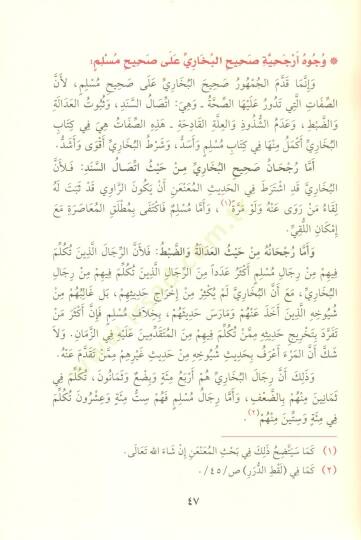 * وُجُوهُ أَرْجَحِيَّةِ صَحِيحِ البُخَارِيِّ عَلَى صَحِيحِ مُسْلِمٍ:
وَإِنَّمَا قَدَّمَ الجُمْهُورُ صَحِيحَ البُخَارِيِّ عَلَى صَحِيحِ مُسْلِمٍ، لأَنَّ
الصِّفَاتِ الَّتِي تَدُورُ عَلَيْهَا الصِّحَّةُ ـ وَهِيَ: اتِّصَالُ السَّنَدِ، وَثُبُوتُ العَدَالَةِ
وَالضَّبْطِ، وَعَدَمُ الشُّذُوذِ وَالعِلَّةِ القَادِحَةِ ـ هَذِهِ الصِّفَاتُ هِيَ فِي كِتَابِ
البُخَارِيِّ أَكْمَلُ مِنْهَا فِي كِتَابِ مُسْلِمٍ وَأَسَدُّ، وَشَرْطُ البُخَارِيِّ أَقْوَى وَأَشَدُّ.
أَمَّا رُجْحَانُ صَحِيحِ البُخَارِيِّ مِنْ حَيْثُ اتِّصَالُ السَّنَدِ: فَلأَنَّ
البُخَارِيَّ قَدِ اشْتَرَطَ فِي الحَدِيثِ المُعَنْعَنِ أَنْ يَكُونَ الرَّاوِي قَدْ ثَبَتَ لَهُ
لِقَاءُ مَنْ رَوَى عَنْهُ وَلَوْ مَرَّةً(١)، وَأَمَّا مُسْلِمٌ فَاكْتَفَى بِمُطْلَقِ المُعَاصَرَةِ مَعَ
إِمْكَانِ اللُّقِيِّ.
وَأَمَّا رُجْحَانُهُ مِنْ حَيْثُ العَدَالَةُ وَالضَّبْطُ: فَلأَنَّ الرِّجَالَ الَّذِينَ تُكُلِّمَ
فِيهِمْ مِنْ رِجَالِ مُسْلِمٍ أَكْثَرُ عَدَداً مِنَ الرِّجَالِ الَّذِينَ تُكُلِّمَ فِيهِمْ مِنْ رِجَالِ
البُخَارِيِّ، مَعَ أَنَّ البُخَارِيَّ لَمْ يُكْثِرْ مِنْ إِخْرَاجِ حَدِيثِهِمْ، بَلْ غَالِبُهُمْ مِنْ
شُيُوخِهِ الَّذِينَ أَخَذَ عَنْهُمْ وَمَارَسَ حَدِيثَهُمْ، بِخِلَافِ مُسْلِمٍ فَإِنَّ أَكْثَرَ مَنْ
تَفَرَّدَ بِتَخْرِيجِ حَدِيثِهِ مِمَّنْ تُكُلِّمَ فِيهِ مِنَ المُتَقَدِّمِينَ عَلَيْهِ فِي الزَّمَانِ. وَلاَ
شَكَّ أَنَّ المَرْءَ أَعْرَفُ بِحَدِيثِ شُيُوخِهِ مِنْ حَدِيثِ غَيْرِهِمْ مِمَّنْ تَقَدَّمَ عَنْهُ.
وَذَلِكَ أَنَّ رِجَالَ البُخَارِيِّ هُمْ أَرْبَعُ مِئَةٍ وَبِضْعٌ وَثَمَانُونَ، تُكُلِّمَ فِي
ثَمَانِينَ مِنْهُمْ بِالضَّعْفِ، وَأَمَّا رِجَالُ مُسْلِمٍ فَهُمْ سِتُّ مِئَةٍ وَعِشْرُونَ تُكُلِّمَ
فِي مِئَةٍ وَسِتِّينَ مِنْهُمْ(٢).
(١) كَمَا سَيَتَّضِحُ ذَلِكَ فِي بَحْثِ المُعَنْعَنِ إِنْ شَاءَ الله تَعَالَى.
(٢) كَمَا فِي (لَقْطِ الدُّرَرِ) ص/٤٥/.
٤٧